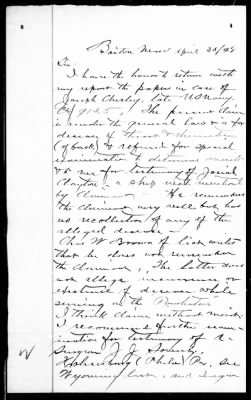 Boston Mass April 20/88
Sir:
I have the honor to return with
my report the papers in case of
Joseph, late US Navy,
The present claim
is under the general law & is for
disease of throat & rheumatism
(of back) & referred for special
examination to determine merit
& to me for testimony of Josiah
Clayton - a ship mate mentioned
by claimant. He remembers
the claimant very well but has
no recollection of any of the
alleged disease -
Chas W Brown of list writes
that he does not remember
the claimant. The latter does
not allege incurrence or
existence of disease while
serving on the
I think claim without merit
I recommend further exam-
ination for testimony of
Surgeon J. J.
(Phila) Pa, See
Wyoming list, and Surgeon